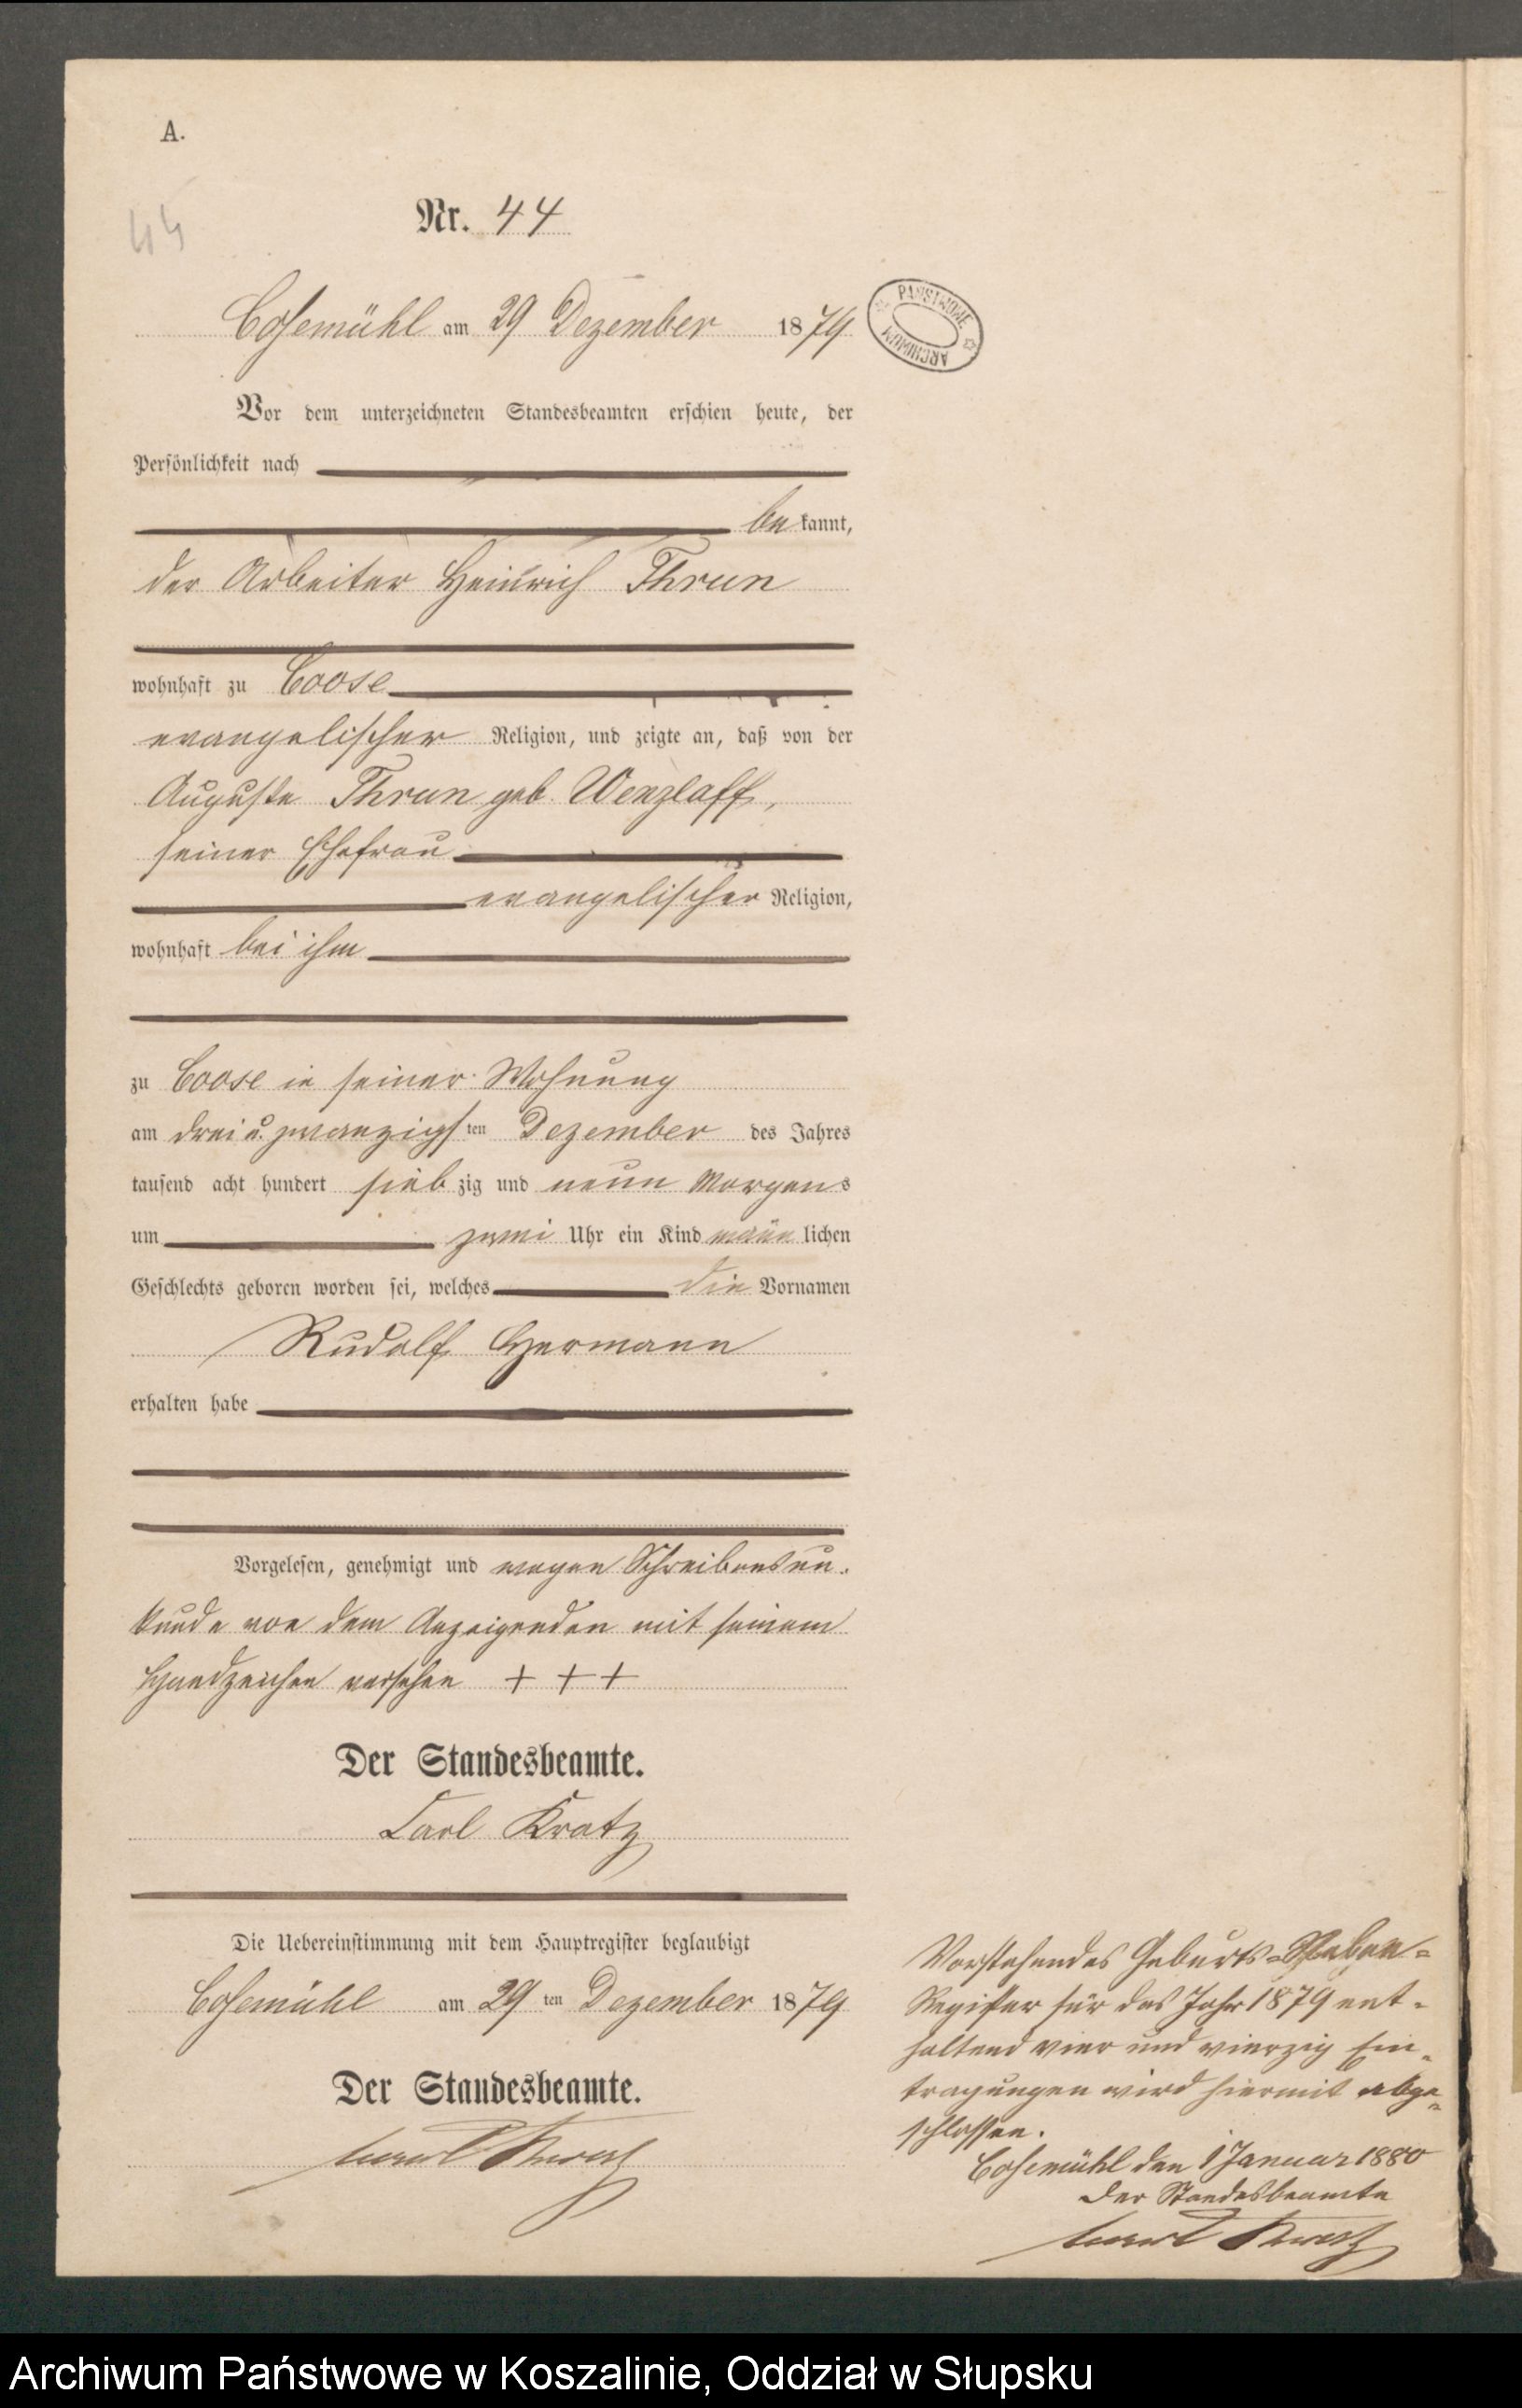 A.
44
Nr. 44
Cosemühl am 29 Dezember 1879
PAŃSTWOWE
ARCHIWUM
Vor dem unterzeichneten Standesbeamten erschien heute, der
Persönlichkeit nach
be kannt,
der Arbeiter Heinrich Thrun
wohnhaft zu Coose
evangelischer Religion, und zeigte an, daß von der
Auguste Thrun geb. Wenzlaff,
seiner Ehefrau
evangelischer Religion,
wohnhaft bei ihm
zu Coose in seiner Wohnung
am drei u. zwanzigs ten Dezember des Jahres
tausend acht hundert sieb zig und neun Morgens
um zwei Uhr ein Kind männ lichen
Geschlechts geboren worden sei, welches die Vornamen
Rudolf Hermann
erhalten habe
Vorgelesen, genehmigt und wegen Schreibensun-
kunde von dem Anzeigenden mit seinem
Handzeichen versehen + + +
Der Standesbeamte.
Carl Kratz
Die Uebereinstimmung mit dem Hauptregister beglaubigt
Cosemühl am 29 ten Dezember 1879
Der Standesbeamte.
Carl Kratz
Vorstehendes Geburts-Neben-
Register für das Jahr 1879 ent-
haltend vier und vierzig Ein-
tragungen wird hiermit abge-
schlossen.
Cosemühl den 1 Januar 1880
Der Standesbeamte
Carl Kratz
Archiwum Państwowe w Koszalinie, Oddział w Słupsku